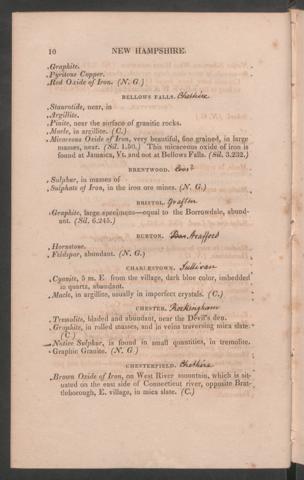 10 NEW HAMPSHIRE.
Graphite.
Pyritous Copper.
Red Oxide of Iron. (N. G.)
BELLOWS FALLS. Cheshire
Staurotide, near, in
Argillite.
Pinite, near the surface of granitic rocks.
Macle, in argillite. (C.)
Micaceous Oxide of Iron, very beautiful, fine grained, in large
masses, near. (Sil. 1.50.) This micaceous oxide of iron is
found at Jamaica, Vt. and not at Bellows Falls. (Sil. 3.232.)
BRENTWOOD.
Sulphur, in masses of
Sulphate of Iron, in the iron ore mines. (N. G.)
BRISTOL. Grafton
Graphite, large specimens—equal to the Borrowdale, abund-
ant. (Sil. 6.245.)
BURTON. Strafford
Hornstone.
Feldspar, abundant. (N. G.)
CHARLESTOWN. Sullivan
Cyanite, 5 m. E. from the village, dark blue color, imbedded
in quartz, abundant.
Macle, in argillite, usually in imperfect crystals. (C.)
CHESTER. Rockingham
Tremolite, bladed and abundant, near the Devil's den.
Graphite, in rolled masses, and in veins traversing mica slate.
(C.)
Native Sulphur, is found in small quantities, in tremolite.
Graphic Granite. (N. G.)
CHESTERFIELD. Cheshire
Brown Oxide of Iron, on West River mountain, which is sit-
uated on the east side of Connecticut river, opposite Brat-
tleborough, E. village, in mica slate. (C.)